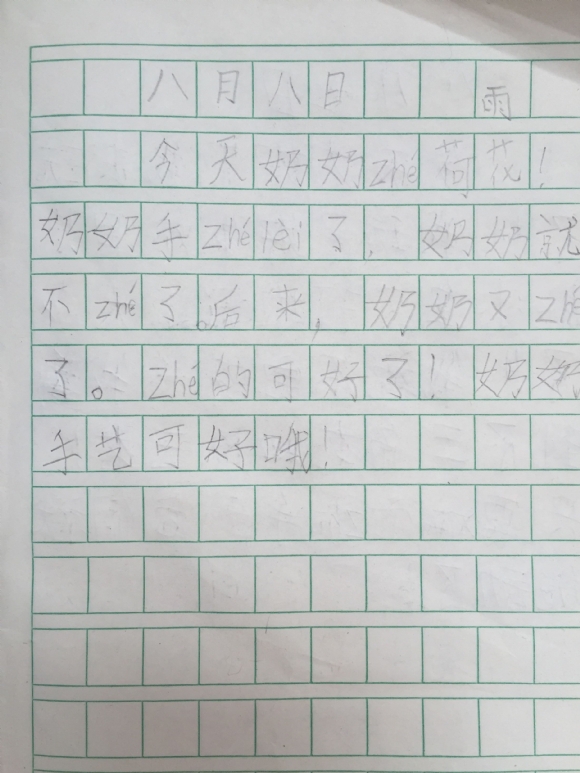 八月八日 雨
今天奶奶zhé荷花!
奶奶手zhélèi了,奶奶就
不zhé了。后来,奶奶又zhé
了。zhé的可好了!奶奶
手艺可好哦!